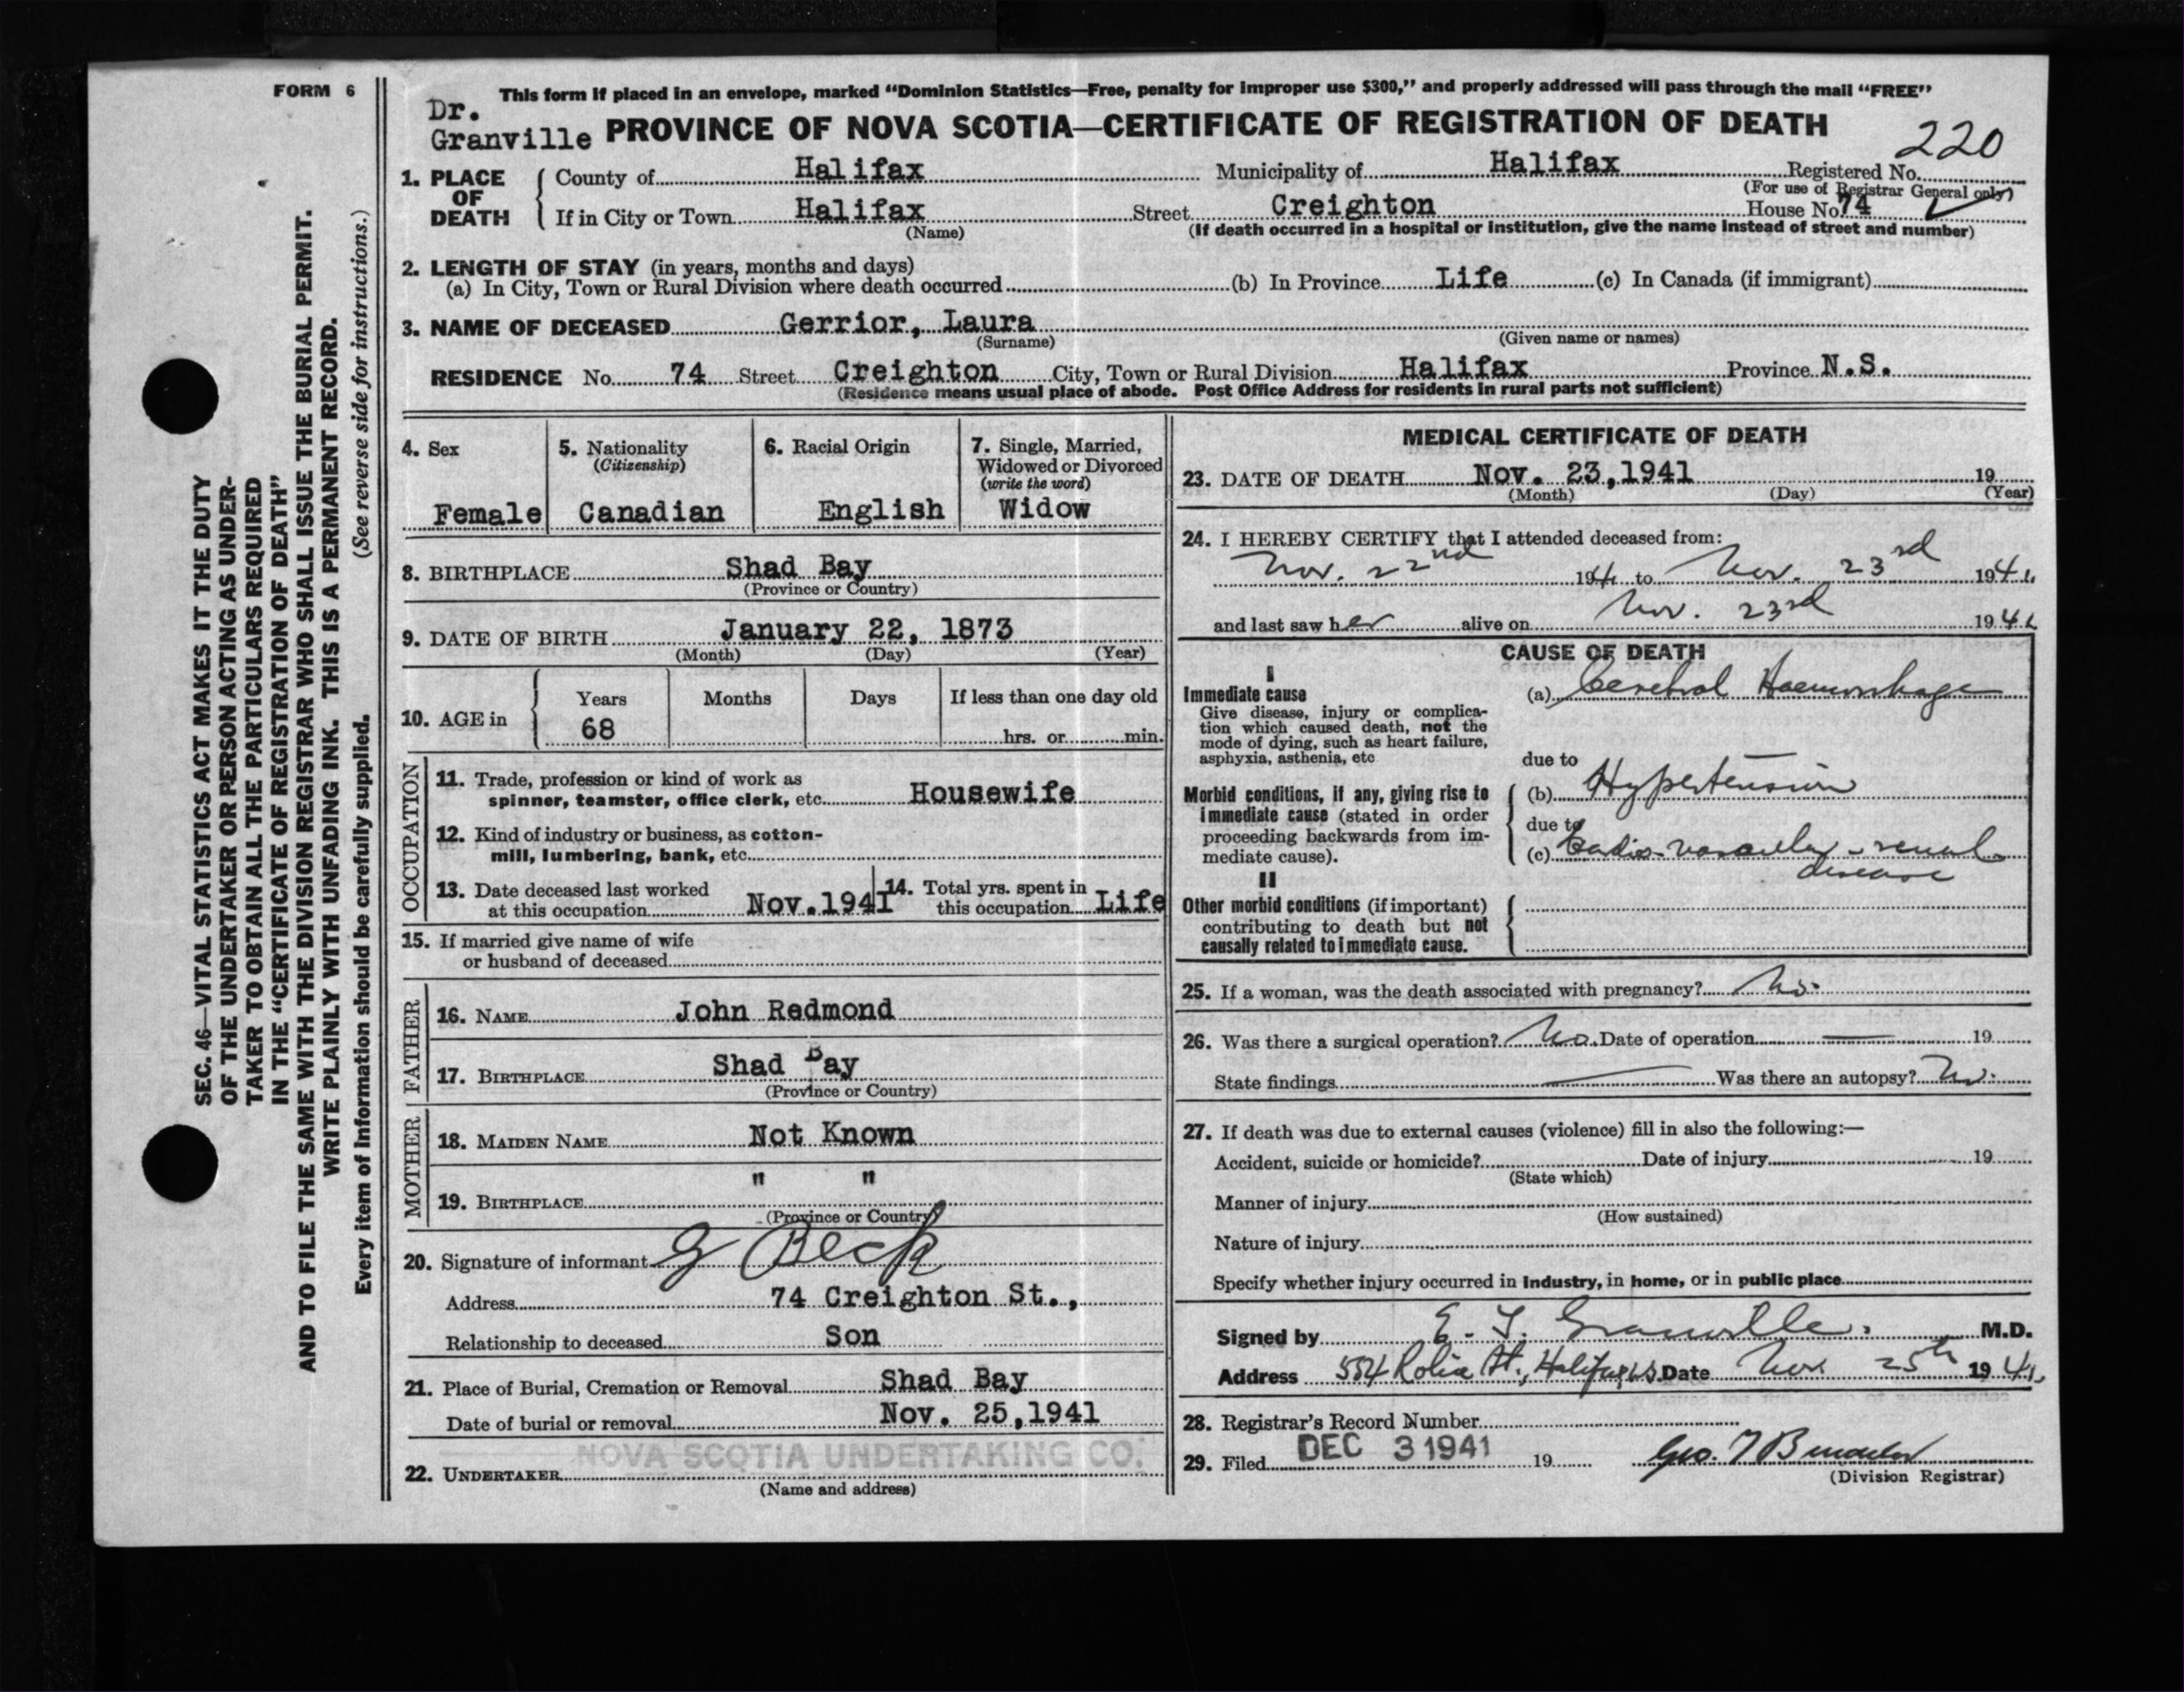 FORM 6
SEC. 46—VITAL STATISTICS ACT MAKES IT THE DUTY
OF THE UNDERTAKER OR PERSON ACTING AS UNDER-
TAKER TO OBTAIN ALL THE PARTICULARS REQUIRED
IN THE "CERTIFICATE OF REGISTRATION OF DEATH"
AND TO FILE THE SAME WITH THE DIVISION REGISTRAR WHO SHALL ISSUE THE BURIAL PERMIT.
WRITE PLAINLY WITH UNFADING INK. THIS IS A PERMANENT RECORD.
Every item of information should be carefully supplied. (See reverse side for instructions.)
This form if placed in an envelope, marked "Dominion Statistics—Free, penalty for improper use $300," and properly addressed will pass through the mail "FREE"
Dr.
Granville PROVINCE OF NOVA SCOTIA—CERTIFICATE OF REGISTRATION OF DEATH
220
1. PLACE OF DEATH
County of Halifax Municipality of Halifax Registered No.
(For use of Registrar General only)
If in City or Town Halifax Street Creighton House No 74
(Name) (If death occurred in a hospital or institution, give the name instead of street and number)
2. LENGTH OF STAY (in years, months and days)
(a) In City, Town or Rural Division where death occurred (b) In Province Life (c) In Canada (if immigrant)
3. NAME OF DECEASED Gerrior, Laura
(Surname) (Given name or names)
RESIDENCE No. 74 Street Creighton City, Town or Rural Division Halifax Province N.S.
(Residence means usual place of abode. Post Office Address for residents in rural parts not sufficient)
4. Sex
Female
5. Nationality
(Citizenship)
Canadian
6. Racial Origin
English
7. Single, Married,
Widowed or Divorced
(write the word)
Widow
8. BIRTHPLACE Shad Bay
(Province or Country)
9. DATE OF BIRTH January 22, 1873
(Month) (Day) (Year)
10. AGE in
Years Months Days If less than one day old
68 hrs. or min.
OCCUPATION
11. Trade, profession or kind of work as
spinner, teamster, office clerk, etc. Housewife
12. Kind of industry or business, as cotton-
mill, lumbering, bank, etc.
13. Date deceased last worked
at this occupation Nov.1941
14. Total yrs. spent in
this occupation Life
15. If married give name of wife
or husband of deceased
FATHER
16. NAME John Redmond
17. BIRTHPLACE Shad Bay
(Province or Country)
MOTHER
18. MAIDEN NAME Not Known
19. BIRTHPLACE " "
(Province or Country)
20. Signature of informant G Beck
Address 74 Creighton St.,
Relationship to deceased Son
21. Place of Burial, Cremation or Removal Shad Bay
Date of burial or removal Nov. 25,1941
NOVA SCOTIA UNDERTAKING CO.
22. UNDERTAKER
(Name and address)
MEDICAL CERTIFICATE OF DEATH
23. DATE OF DEATH Nov. 23,1941 19
(Month) (Day) (Year)
24. I HEREBY CERTIFY that I attended deceased from:
Nov. 22nd 1941 to Nov. 23rd 1941
and last saw her alive on Nov. 23rd 1941
CAUSE OF DEATH
I
Immediate cause
Give disease, injury or complica-
tion which caused death, not the
mode of dying, such as heart failure,
asphyxia, asthenia, etc
(a) Cerebral Haemorrhage
due to
Morbid conditions, if any, giving rise to
immediate cause (stated in order
proceeding backwards from im-
mediate cause).
(b) Hypertension
due to
(c) Cardio-vascular-renal
disease
II
Other morbid conditions (if important)
contributing to death but not
causally related to immediate cause.
25. If a woman, was the death associated with pregnancy? No.
26. Was there a surgical operation? No. Date of operation — 19
State findings — Was there an autopsy? No.
27. If death was due to external causes (violence) fill in also the following:—
Accident, suicide or homicide? Date of injury 19
(State which)
Manner of injury
(How sustained)
Nature of injury
Specify whether injury occurred in industry, in home, or in public place
Signed by E. F. Granville. M.D.
Address Halifax, N.S. Date Nov 25th 1941
28. Registrar's Record Number
29. Filed DEC 3 1941 19 Geo.
(Division Registrar)